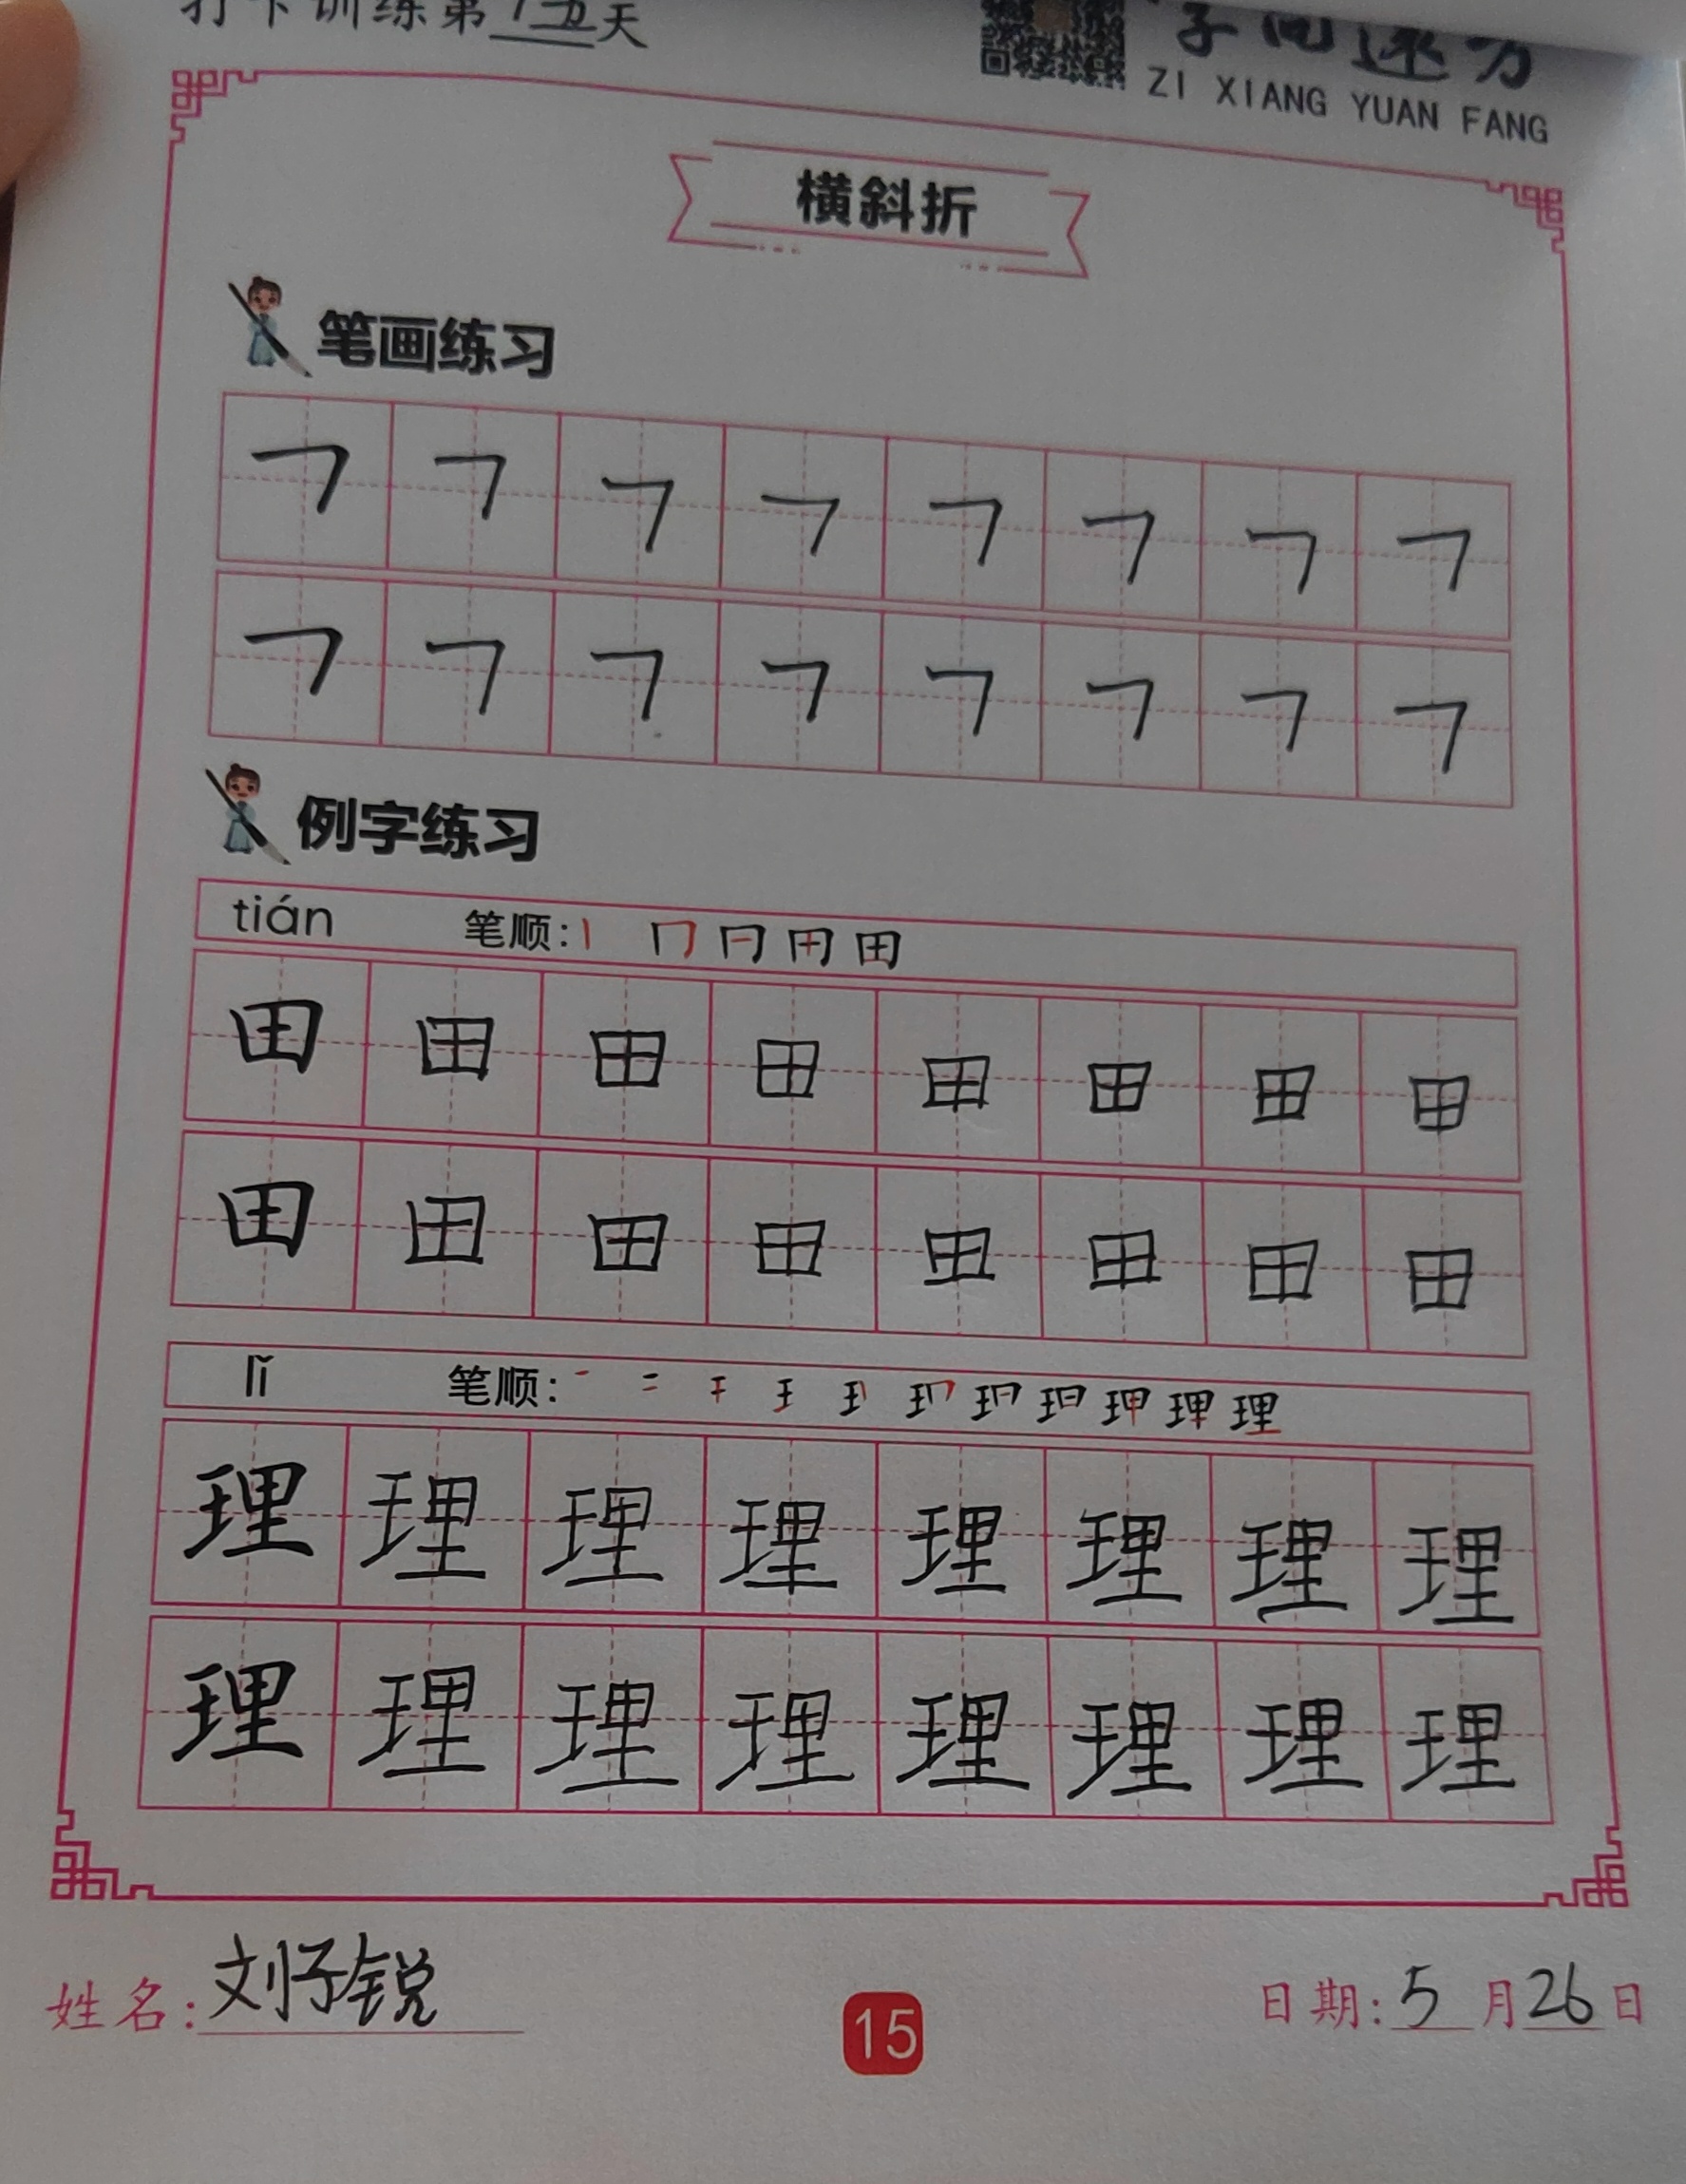 打卡训练第十五天
ZI XIANG YUAN FANG
横斜折
笔画练习
㇕ ㇕ ㇕ ㇕ ㇕ ㇕ ㇕ ㇕
㇕ ㇕ ㇕ ㇕ ㇕ ㇕ ㇕ ㇕
例字练习
tián 笔顺:
田 田 田 田 田 田 田 田
田 田 田 田 田 田 田 田
lǐ 笔顺:
理 理 理 理 理 理 理 理
理 理 理 理 理 理 理 理
姓名:刘子锐
15
日期:5月26日